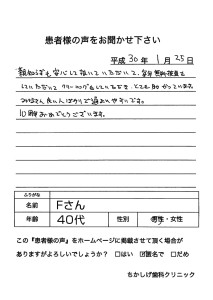 患者様の声をお聞かせ下さい
平成 30 年 1 月 25 日
親知らずも安心して抜いていただいて、毎年無料検査を
していただいて クリーニングもしていただき、とても助かってます。
みなさん良い人ばかりで通いやすいです。
10周年おめでとうございます。
ふりがな
名前 Fさん
年齢 40代 性別 男性・女性
この『患者様の声』をホームページに掲載させて頂く場合が
ありますがよろしいでしょうか? □はい ☑匿名で □だめ
ちかしげ歯科クリニック